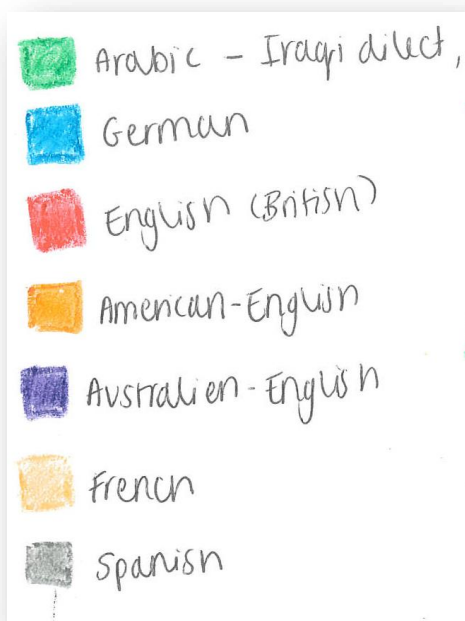 Arabic - Iraqi dilect,
German
English (British)
American-English
Australien-English
French
Spanish